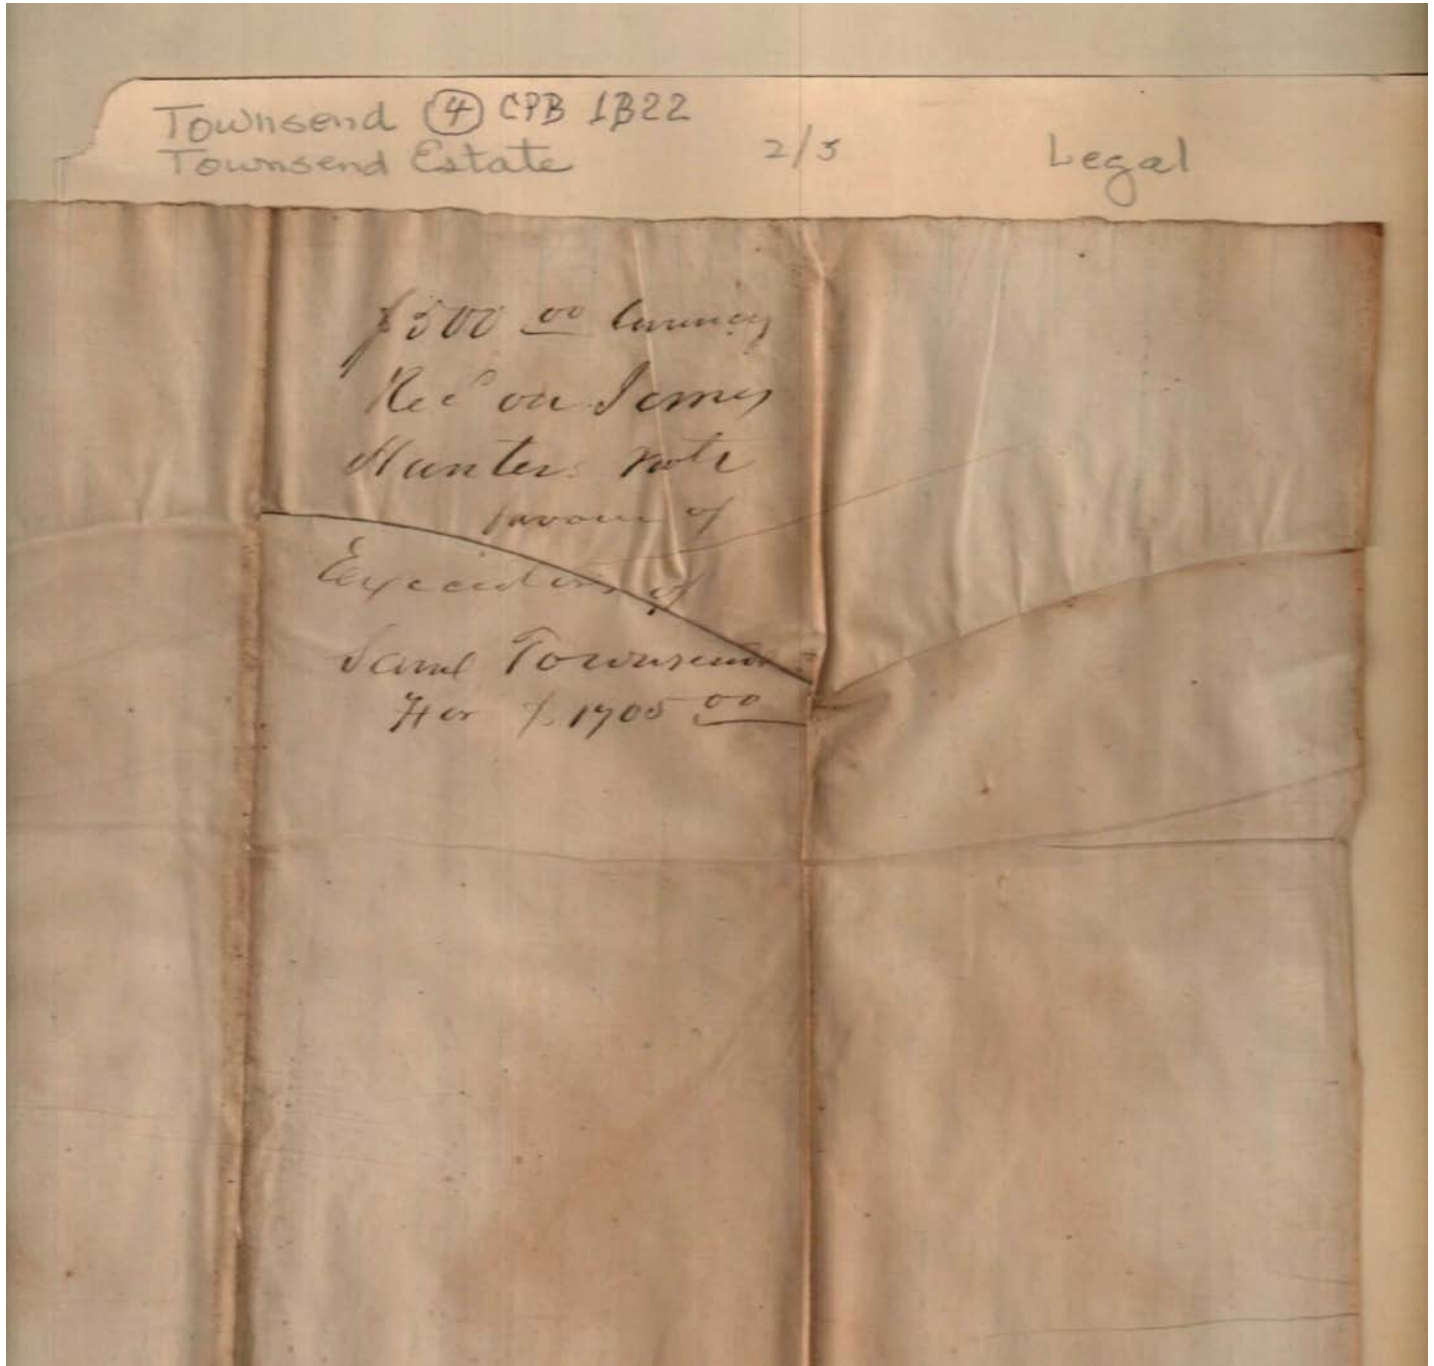 Townsend ④ CPB 1B22
Townsend Estate 2/3 Legal
$500 00 Currency
Rec on James
Hunter note
favour of
Executors of
Saml Townsend
For $1705 00